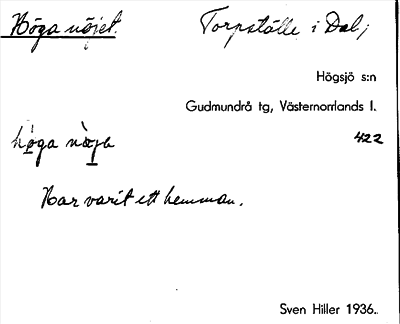 Höga nöjet. Torpställe i Dal,
Högsjö s:n
Gudmundrå tg, Västernorrlands l.
422
höga
Har varit ett hemman.
Sven Hiller 1936.